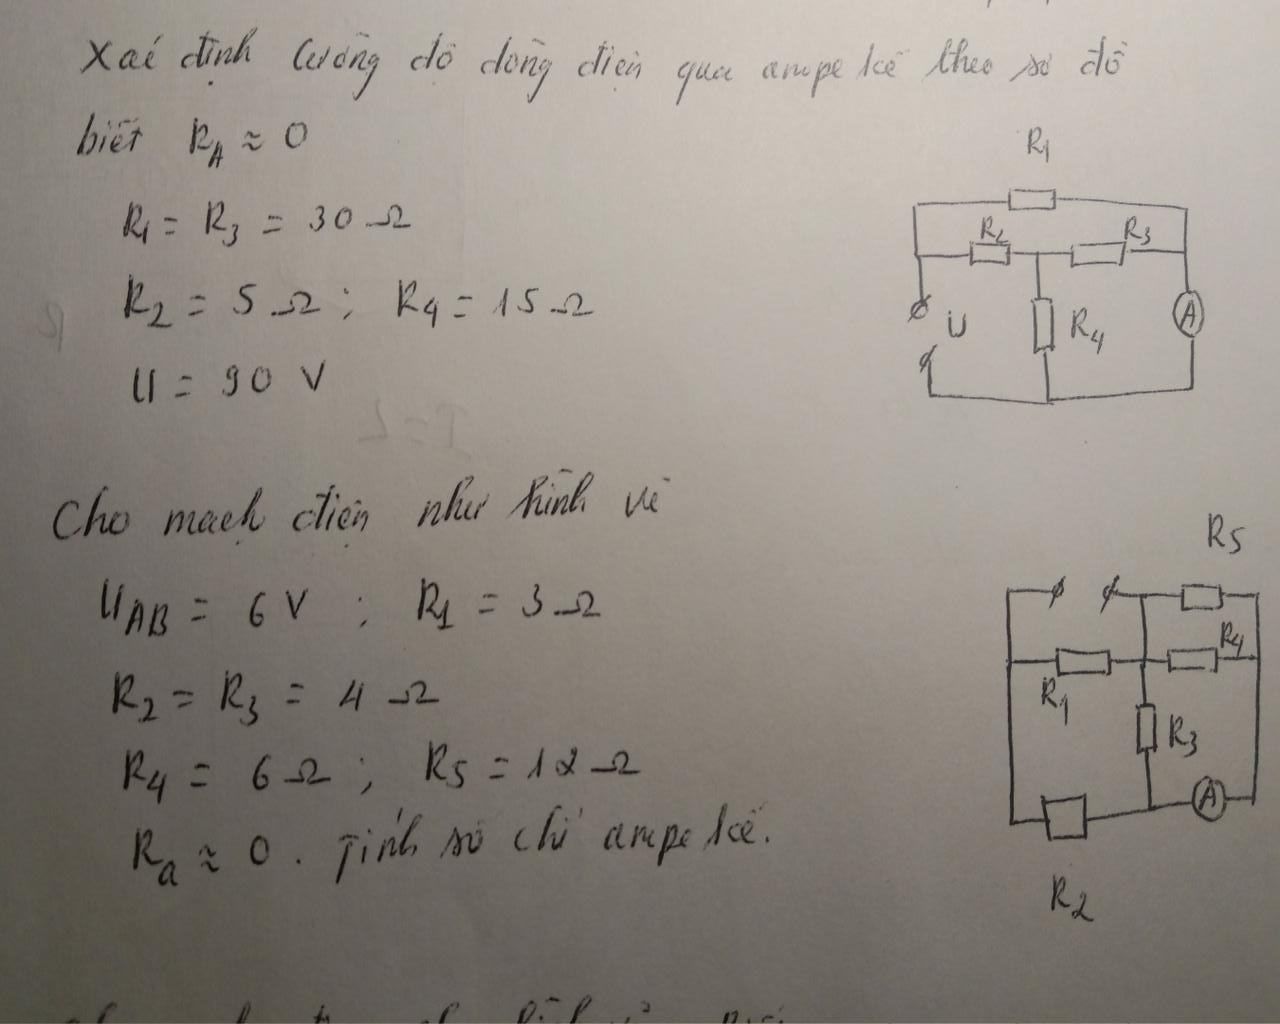 Xác định Cường độ dòng điện qua ampe kế theo sơ đồ
biết R_A ≈ 0
R1 = R3 = 30 Ω
R2 = 5 Ω ; R4 = 15 Ω
U = 90 V
R1
R2
R3
U
R4
A
Cho mạch điện như hình vẽ
U_AB = 6 V ; R1 = 3 Ω
R2 = R3 = 4 Ω
R4 = 6 Ω ; R5 = 12 Ω
R_a ≈ 0 . Tính số chỉ ampe kế.
R5
R4
R1
R3
A
R2